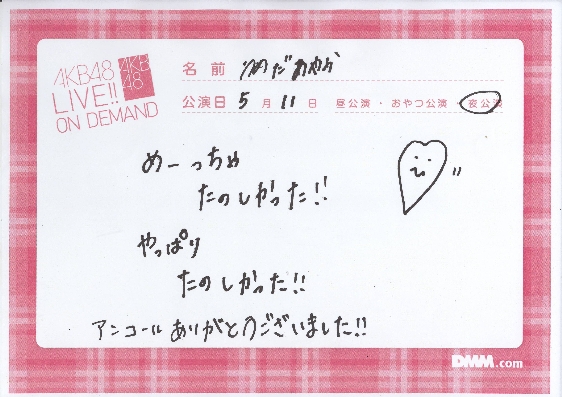 AKB48
LIVE!!
ON DEMAND
AKB
48
名前 うめだあやか
公演日 5月11日 昼公演・おやつ公演・夜公演
めーっちゃ
たのしかった!!
やっぱり
たのしかった!!
アンコールありがとうございました!!
DMM.com